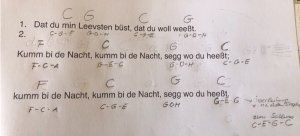 C G C G C
1. Dat du min Leevsten büst, dat du woll weeßt.
2. C-G-E G-D-H C-G-E
F C G C
Kumm bi de Nacht, kumm bi de Nacht, segg wo du heeßt;
F-C-A G-E-C G-D-H C-G-E
F C G C
kumm bi de Nacht, kumm bi de Nacht, segg wo du heeßt.
F-C-A C-G-E GDH G-E-C
zum Schluss
C-E-G-C